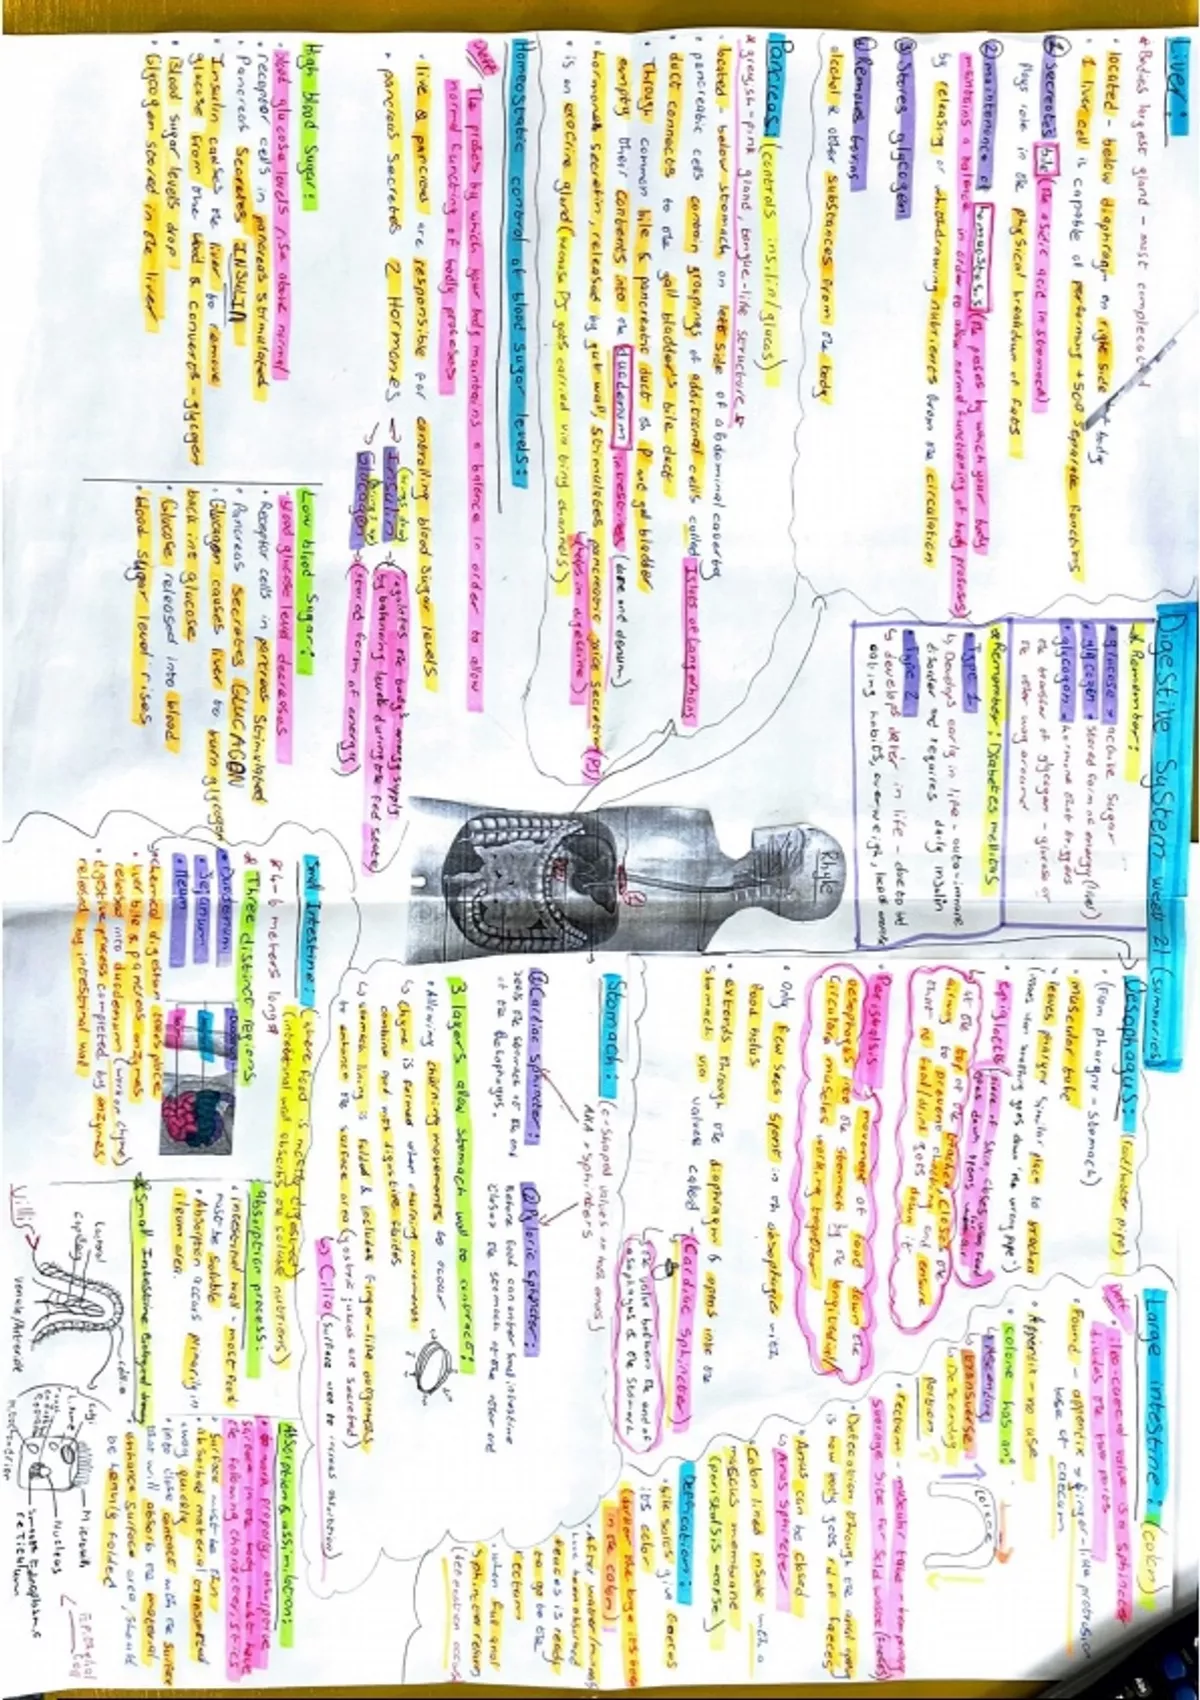 Digestive System week 2! (summaries)
Liver:
* Bodies largest gland - most complecated
• located - below diaphragm on right side of body
• 1 liver cell is capable of performing +500 separate functions
① secreates bile (the asidic acid in stomach)
plays role in the physical breakdown of fats
② maintenence of homeostasis (the poses by which your body
maintains a balence in order to allow normal functioning of body prosses)
by releasing or whidrawing nutrients from the circulation
③ Stores glycogen
④ Removes toxins
alcohol & other substances from the body
Pancreas: (controls insilin/glucos)
* greyish-pink gland, tongue-like structure *
• located - below stomach on left side of abdominal caverty
• pancreatic cells contain groupings of additional cells called Islets of Langerhans
• duct connects to the gall bladder's bile duct
• Through common bile & pancreatic duct the P and gal bladder
empty their contents into the duodenum
• hormone secretin, released by gut wall, stimulates pancreatic juice secretion (PJ)
• is an exocrine gland (because PJ goes carried via being channels)
Homeostatic control of blood sugar levels:
The proses by which your body maintains a balence in order to allow
normal functing of body prosesses
• live & pancreas are responsible for controlling blood sugar levels
• pancreas secretes 2 Hormones → Insulin
→ Glucagon
(regulates the body's energy supply
(stored form of energy)
High blood Sugar:
• blood glucose levels rise above normal
• receptor cells in pancreas stimulated
• Pancreas secretes INSULIN
• Insulin causes the liver to remove
glucose from the blood & converts - glycogen
• Blood sugar levels drop
• Glycogen stored in the liver
Low blood Sugar:
• blood glucose level decreases
• Receptor cells in pancreas stimulated
• Pancreas secretes GLUCAGON
• Glucagon causes liver to turn glycogen
back into glucose
• Glucose released into blood
• blood sugar level rises
* Remember:
• glucose → active sugar
• glycogen → stored form of energy (liver)
• glycagon → hormone that triggers
the transfer of glycogen - glucose or
the other way around
* Remember: Diabetes mellitus
• Type 1
↳ Develops early in life - auto-immune
disorder and requires daily insulin
• Type 2
↳ develops later in life - due to bad
eating habits, overweigh,
Rhyle
Oesophagus:
(from pharynx - stomach)
• muscular tube
• leaves pharynx similar place to trachea
(issues when something goes down 'the wrong pipe')
• epiglottis
airway to prevent choking and ensure
that no food/drink goes down it
• Peristalsis → movement of food down the
oesophagus into the stomach by the longitudinal/
circular muscles working together
• Only few secs spent in oesophagus with
food bolus
• extends through the diaphragm & opens into the
stomach via valves called - Cardiac sphincter
(the valve between the end of
oesophagus & the stomach
Stomach:
AKA → Sphincters
① Cardiac sphincter:
seals the stomach at the end
of the oesophagus.
② Pyloric sphincter:
before food can enter small intestine
closes the stomach at the other end
3 layers allow stomach wall to contract:
• Allowing churning movements to occur
↳ chyme is formed when churning movements
combine food with digestive fluids
↳ stomach lining is folded & includes finger-like alignments
to enhance the surface area (gastric juices are secreted)
↳ Cilia (surface area to increase absorbtion)
Small Intestine: (where food is mostly digested)
(intestinal wall absorbs the soluble nutrients)
* 4-6 meters long *
* Three distinct regions
• Duodenum
• Jejunum
• Ileum
• chemical digestion takes place
• liver bile & pancreas enzymes
released into duodenum (work on chyme)
• digestive process completed by enzymes
released by intestinal wall
Absorption process:
• intestinal wall - most food
must be soluble
• Absorption occurs primarily in
ileum area.
* Small Intestine Enlarged drawing
Villi
Lumen
capillary
cilia
Venule/Arteriole
Absorption & assimilation:
• To work properly absorptive
surfaces in the body must have
the following characteristics
• Surface must be thin
• Absorbed material transported
away quickly
• into close contact with the surface
that will absorb the material
• enhance surface area, should
be heavily folded
Golgi
Microvilli
Nucleus
Smooth Endoplasmic
reticulum
Mitochondrion
Epithelial
cell
Large intestine: (colon)
• ileo-caecal valve is a sphincter
divides the two parts
• Found - appendix → finger-like protrusion
base of caecum
• Appendix - no use
• colone has an:
↳ Ascending
↳ transverse
↳ Decending
portion
colone
• rectum - muscular tube - temporary
storage site for solid waste (feces)
• Defecation through the anal opening
is how body gets rid of faeces
• Anus can be closed
↳ Anus sphincter
• Colon lined inside with a
mucus membrane
(peristalsis - worse)
Defecation:
• bile salts give faeces
its color
in the colon)
• After water/minerals
have been absorbed
faeces is ready
to go to the
rectum
• when full anal
sphincter relaxes
(defecation occurs)